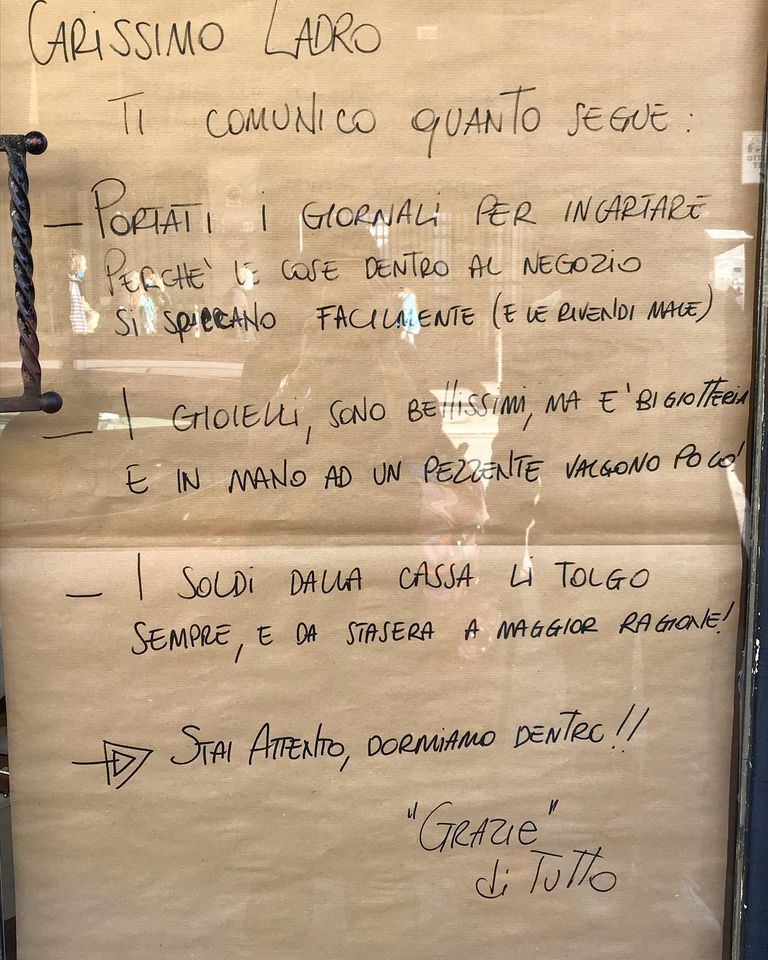 CARISSIMO LADRO
TI COMUNICO QUANTO SEGUE:
— PORTATI I GIORNALI PER INCARTARE
PERCHE' LE COSE DENTRO AL NEGOZIO
SI SPACCANO FACILMENTE (E LE RIVENDI MALE)
— I GIOIELLI, SONO BELLISSIMI, MA E' BIGIOTTERIA
E IN MANO AD UN PEZZENTE VALGONO POCO!
— I SOLDI DALLA CASSA LI TOLGO
SEMPRE, E DA STASERA A MAGGIOR RAGIONE!
STAI ATTENTO, DORMIAMO DENTRO!!
"GRAZIE"
di TUTTO